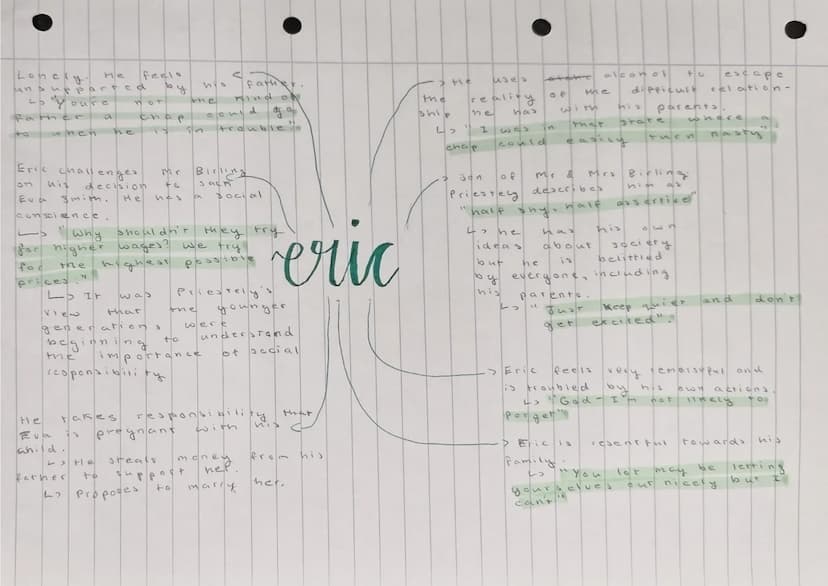 Lonely. He feels
unsupported by his father.
↳ "You're not the kind of
father a chap could go
to when he is in trouble"
Eric challenges Mr Birling
on his decision to sack
Eva Smith. He has a social
conscience.
↳ "Why shouldn't they try
for higher wages? We try
for the highest possible
prices."
↳ It was Priestely's
view that the younger
generations were
beginning to understand
the importance of social
responsibility
He takes responsibility that
Eva is pregnant with his
child.
↳ He steals money from his
father to support her.
↳ Proposes to marry her.
eric
He uses alcohol to escape
the reality of the difficult relation-
ship he has with his parents.
↳ "I was in that state where a
chap could easily turn nasty"
Son of Mr & Mrs Birling
Priestley describes him as
"half shy, half assertive"
↳ he has his own
ideas about society
but he is belittled
by everyone, including
his parents.
↳ "Just keep quiet and don't
get excited".
Eric feels very remorseful and
is troubled by his own actions.
↳ "God - I'm not likely to
forget"
Eric is resentful towards his
family.
↳ "You lot may be letting
yourselves out nicely but I
can't"